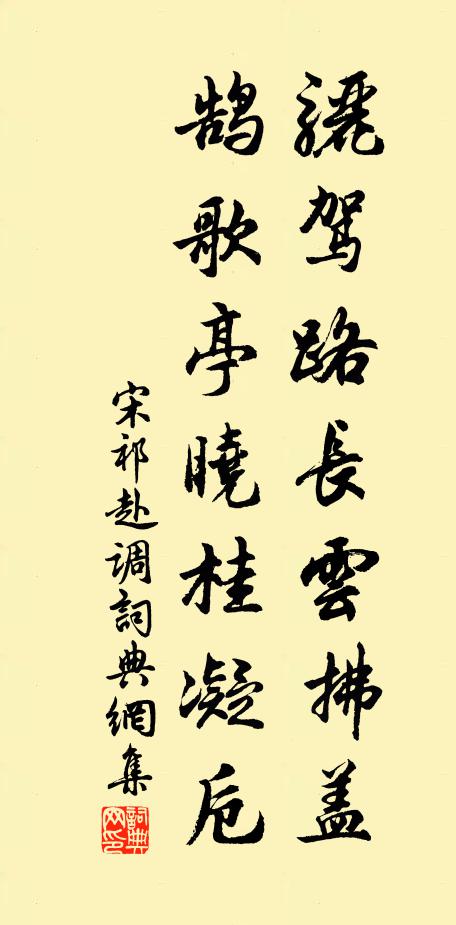 驪駕路長雲拂蓋
鵠歌亭曉桂凝卮
宋祁赴調詞典網集
詞典網印